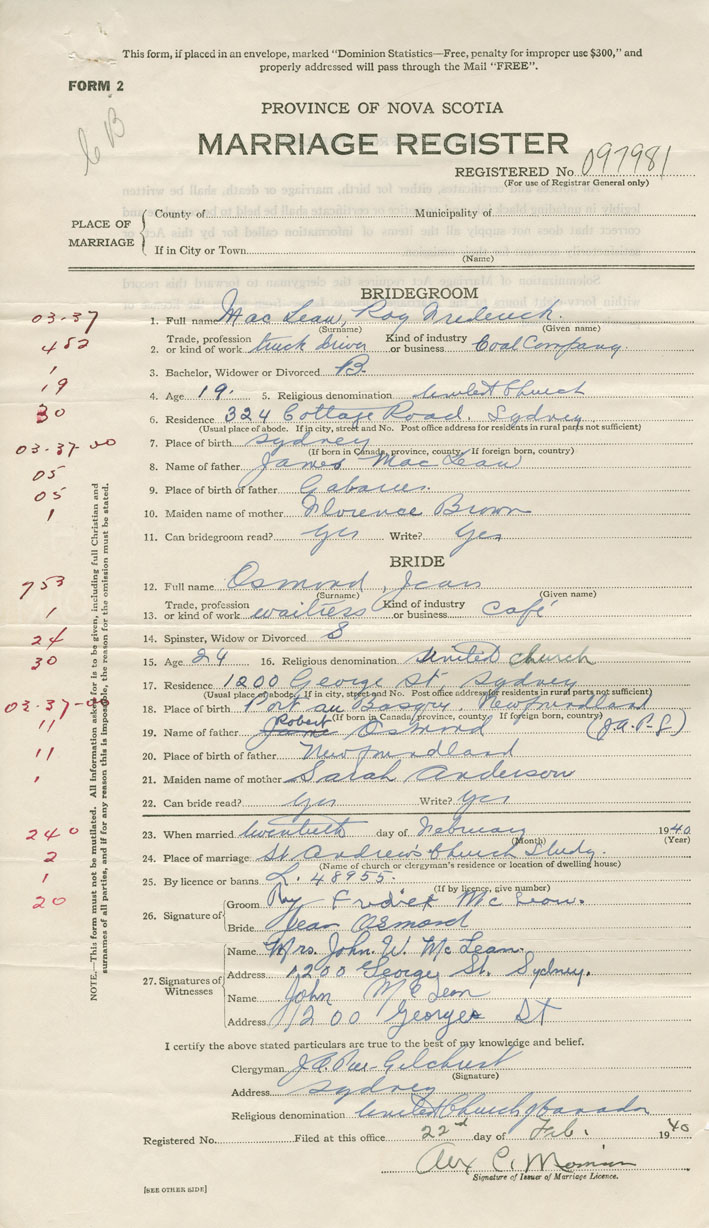 This form, if placed in an envelope, marked "Dominion Statistics—Free, penalty for improper use $300," and
properly addressed will pass through the Mail "FREE".
FORM 2
C B
PROVINCE OF NOVA SCOTIA
MARRIAGE REGISTER
REGISTERED No. 097981
(For use of Registrar General only)
PLACE OF MARRIAGE
County of Municipality of
If in City or Town
(Name)
BRIDEGROOM
03-37 1. Full name MacLean, Roy Frederick
(Surname) (Given name)
452 2. Trade, profession or kind of work truck driver Kind of industry or business Coal Company
1 3. Bachelor, Widower or Divorced B.
19 4. Age 19. 5. Religious denomination United Church
30 6. Residence 324 Cottage Road. Sydney
(Usual place of abode. If in city, street and No. Post office address for residents in rural parts not sufficient)
03-37-00 7. Place of birth Sydney
(If born in Canada, province, county. If foreign born, country)
05 8. Name of father James MacLean
05 9. Place of birth of father Gabarus.
1 10. Maiden name of mother Florence Brown
11. Can bridegroom read? Yes Write? Yes
BRIDE
753 12. Full name Osmond, Jean
(Surname) (Given name)
1 13. Trade, profession or kind of work waitress Kind of industry or business Café
14. Spinster, Widow or Divorced S
24 15. Age 24 16. Religious denomination United Church
30 17. Residence 1200 George St, Sydney
(Usual place of abode. If in city, street and No. Post office address for residents in rural parts not sufficient)
03-37-00 18. Place of birth Port au Basque, Newfoundland
(If born in Canada, province, county. If foreign born, country)
11 19. Name of father Robert Osmond (J.A.P-G)
11 20. Place of birth of father Newfoundland
1 21. Maiden name of mother Sarah Anderson
22. Can bride read? Yes Write? Yes
240 23. When married twentieth day of February 1940
(Month) (Year)
2 24. Place of marriage St. Andrew's Church Study.
(Name of church or clergyman's residence or location of dwelling house)
1 25. By licence or banns L. 48955.
(If by licence, give number)
20 26. Signature of Groom Roy Fredrick McLean.
Bride Jean Osmond
27. Signatures of Witnesses Name Mrs. John. W. McLean.
Address 1200 George St. Sydney.
Name John McLean
Address 1200 George St
I certify the above stated particulars are true to the best of my knowledge and belief.
Clergyman Gilchrist
(Signature)
Address Sydney
Religious denomination United Church of Canada
Registered No. Filed at this office 22nd day of Feb. 1940
Signature of Issuer of Marriage Licence.
[SEE OTHER SIDE]
NOTE.—This form must not be mutilated. All information asked for is to be given, including full Christian and
surnames of all parties, and if for any reason this is impossible, the reason for the omission must be stated.